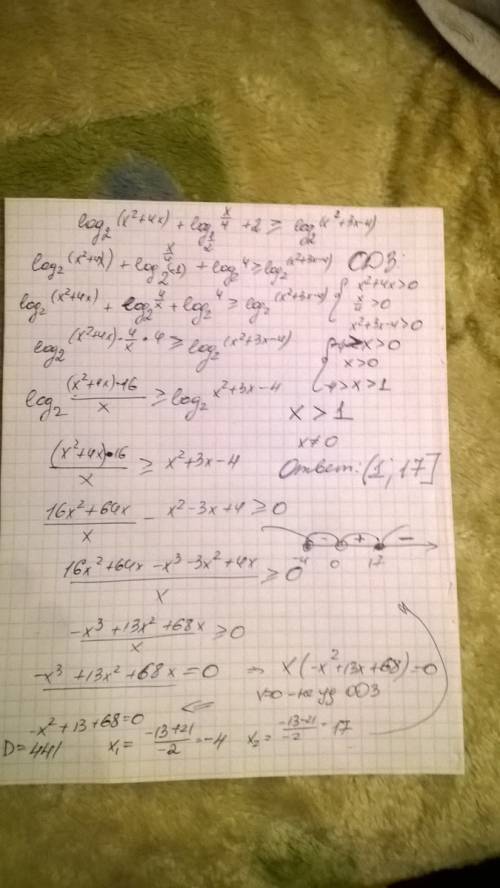 log₂(x²+4x) + log_{1/2} x/4 + 2 ≥ log₂(x²+3x-4)
log₂(x²+4x) + log_{2^(-1)} x/4 + log₂4 ≥ log₂(x²+3x-4) ОДЗ:
log₂(x²+4x) + log₂ 4/x + log₂4 ≥ log₂(x²+3x-4) { x²+4x>0
x/4 >0
x²+3x-4>0
log₂(x²+4x)·4/x·4 ≥ log₂(x²+3x-4) { x>0
x>0
x>1
log₂ (x²+4x)·16/x ≥ log₂ x²+3x-4
x>1
x≠0
(x²+4x)·16/x ≥ x²+3x-4
Ответ: (1; 17]
16x²+64x/x - x²-3x+4 ≥ 0
- + -
-4 0 17
16x²+64x-x³-3x²+4x/x ≥ 0
-x³+13x²+68x/x ≥ 0
-x³+13x²+68x=0 → x(-x²+13x+68)=0
x=0 - не уд ОДЗ
-x²+13+68=0 ⇐
D=441 x₁= -13+21/-2 = -4 x₂= -13-21/-2 = 17